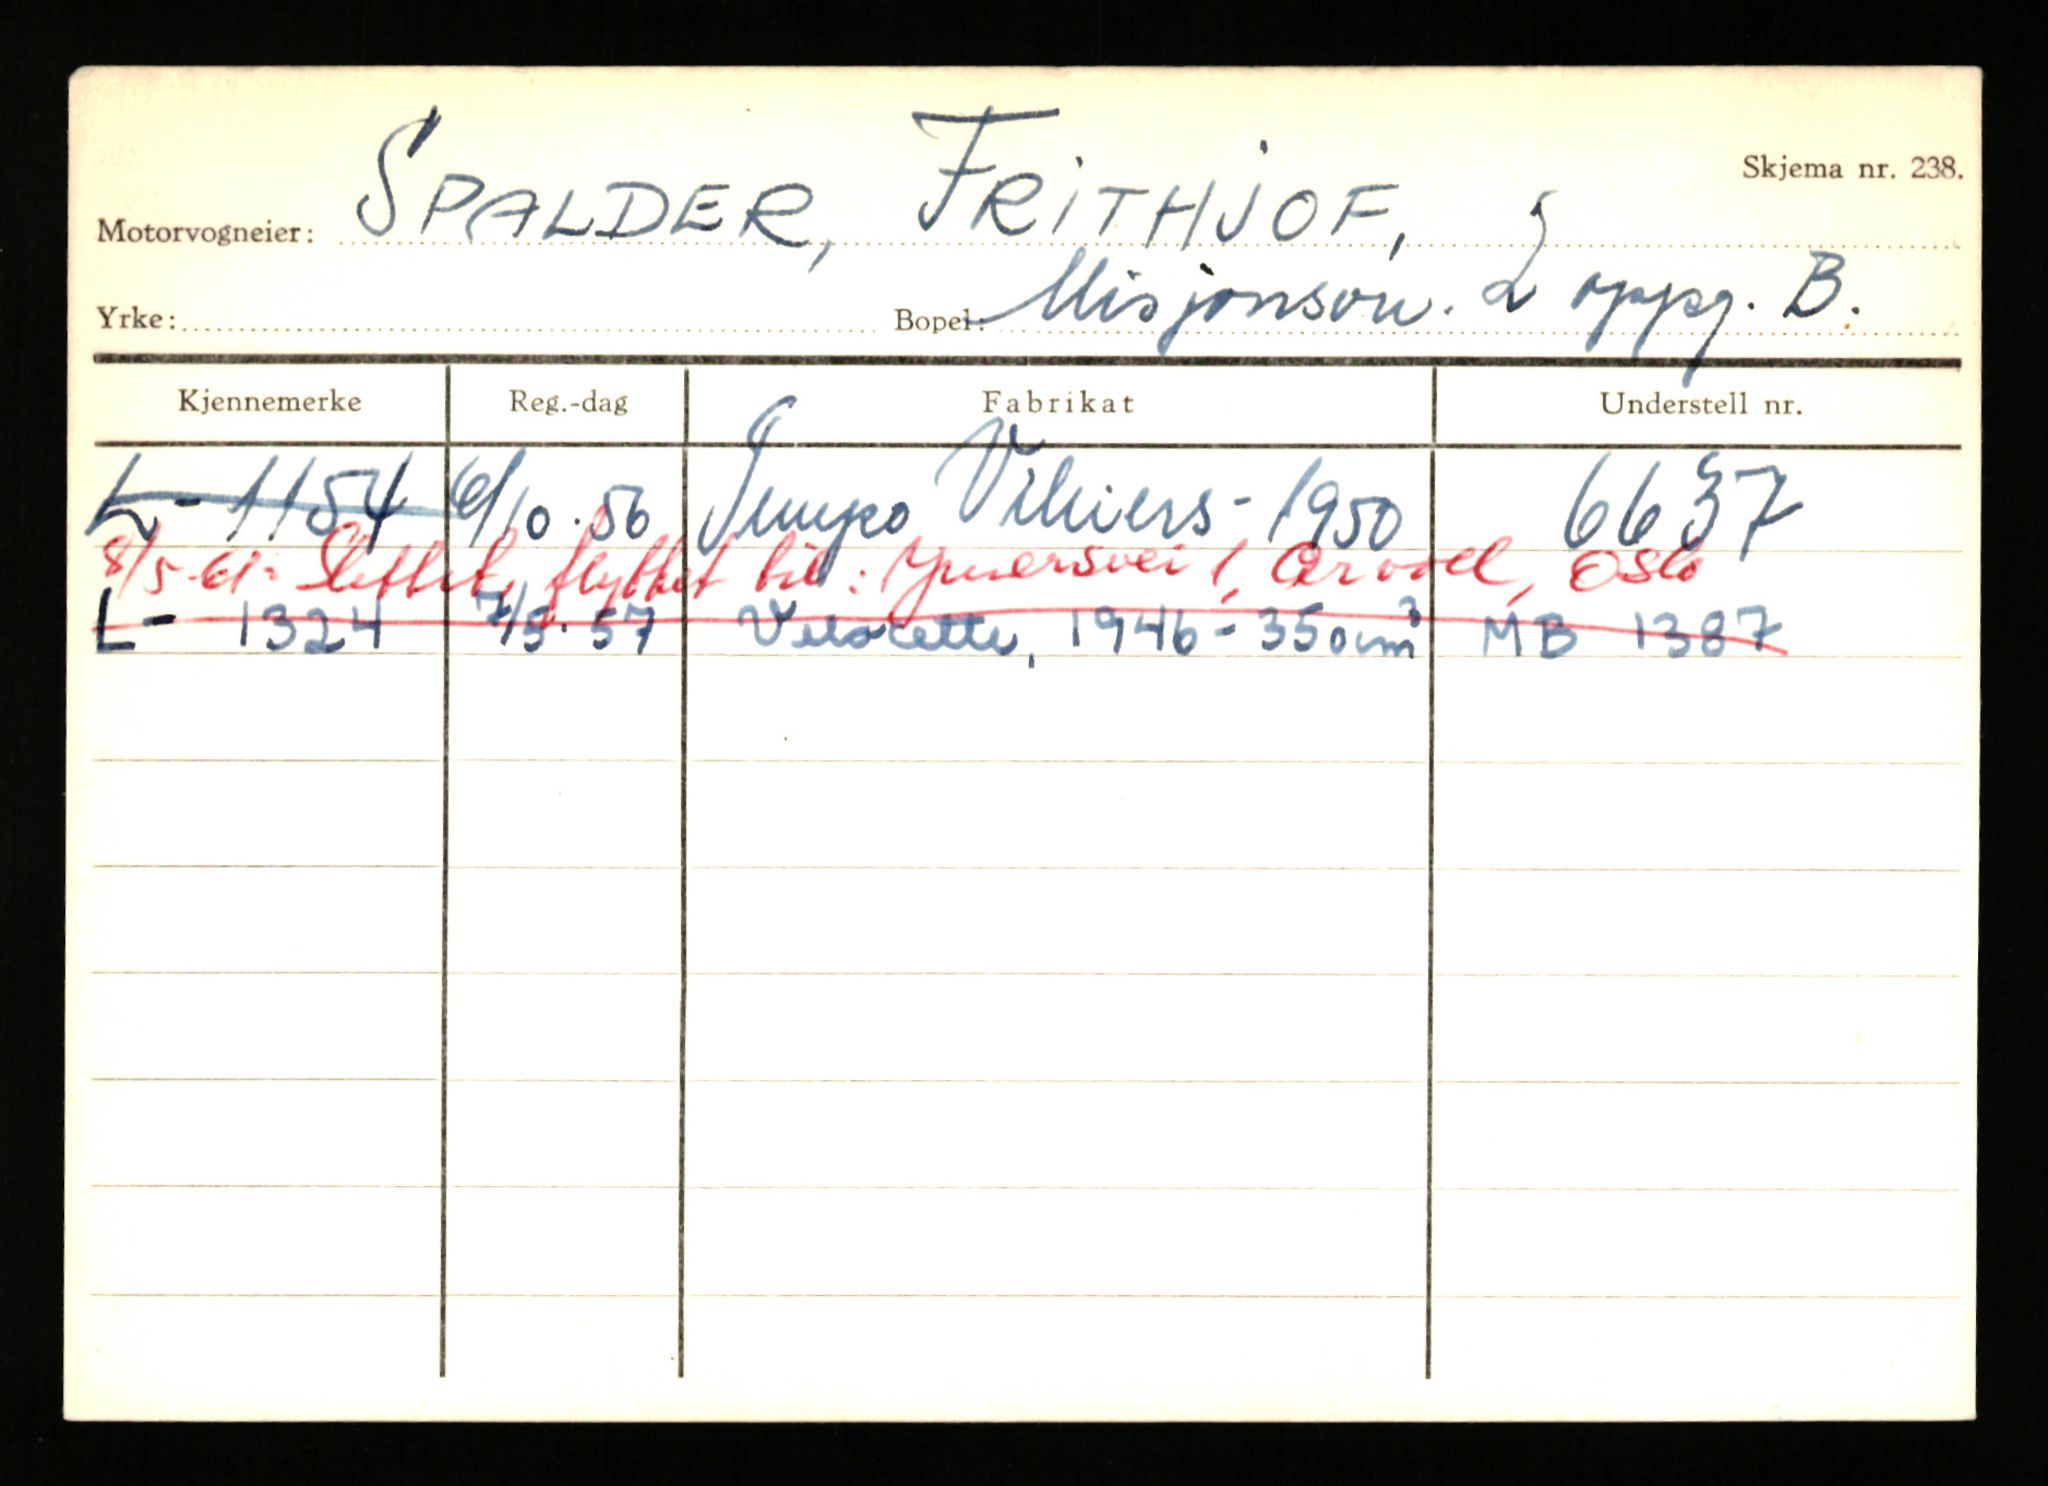 Skjema nr. 238.
Motorvogneier: SPALDER, FRITHJOF,
Yrke: Bopel: Misjonsvn. 2 oppg. B.
Kjennemerke Reg.-dag Fabrikat Understell nr.
L- 1154 6/10.56 Tempo Villiers - 1950 6637
8/5-61- Slettet, flyttet til: Ymersvei 1, Årvoll, Oslo
L- 1324 7/5.57 Velocette, 1946 - 350 cm³ MB 1387